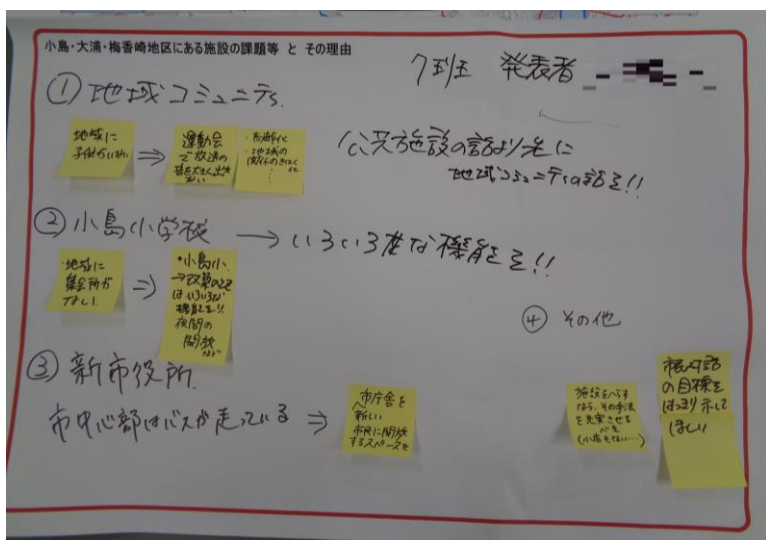 小島・大浦・梅香崎地区にある施設の課題等 と その理由
7班 発表者
① 地域コミュニティ.
地域に
子供がいない
⇒
運動会
で放送の
音を大きく出せ
ない
・高齢化
・地域の
関係のきはく
化
…
公共施設の話より先に
地域コミュニティの話を!!
② 小島小学校 → いろいろ な機能を!!
・地域に
集会所が
ない
⇒
・小島小.
→改築のとき
はいろいろな
機能を!!
夜間の
開放
など
③ 新市役所.
市中心部はバスが走っている ⇒
市庁舎を
新しい
市民に開放
するスペースを
④ その他
施設をへらす
なら、その手法
を充実させる
べき
(小店もない…)
市民対話
の目標を
はっきり示して
ほしい